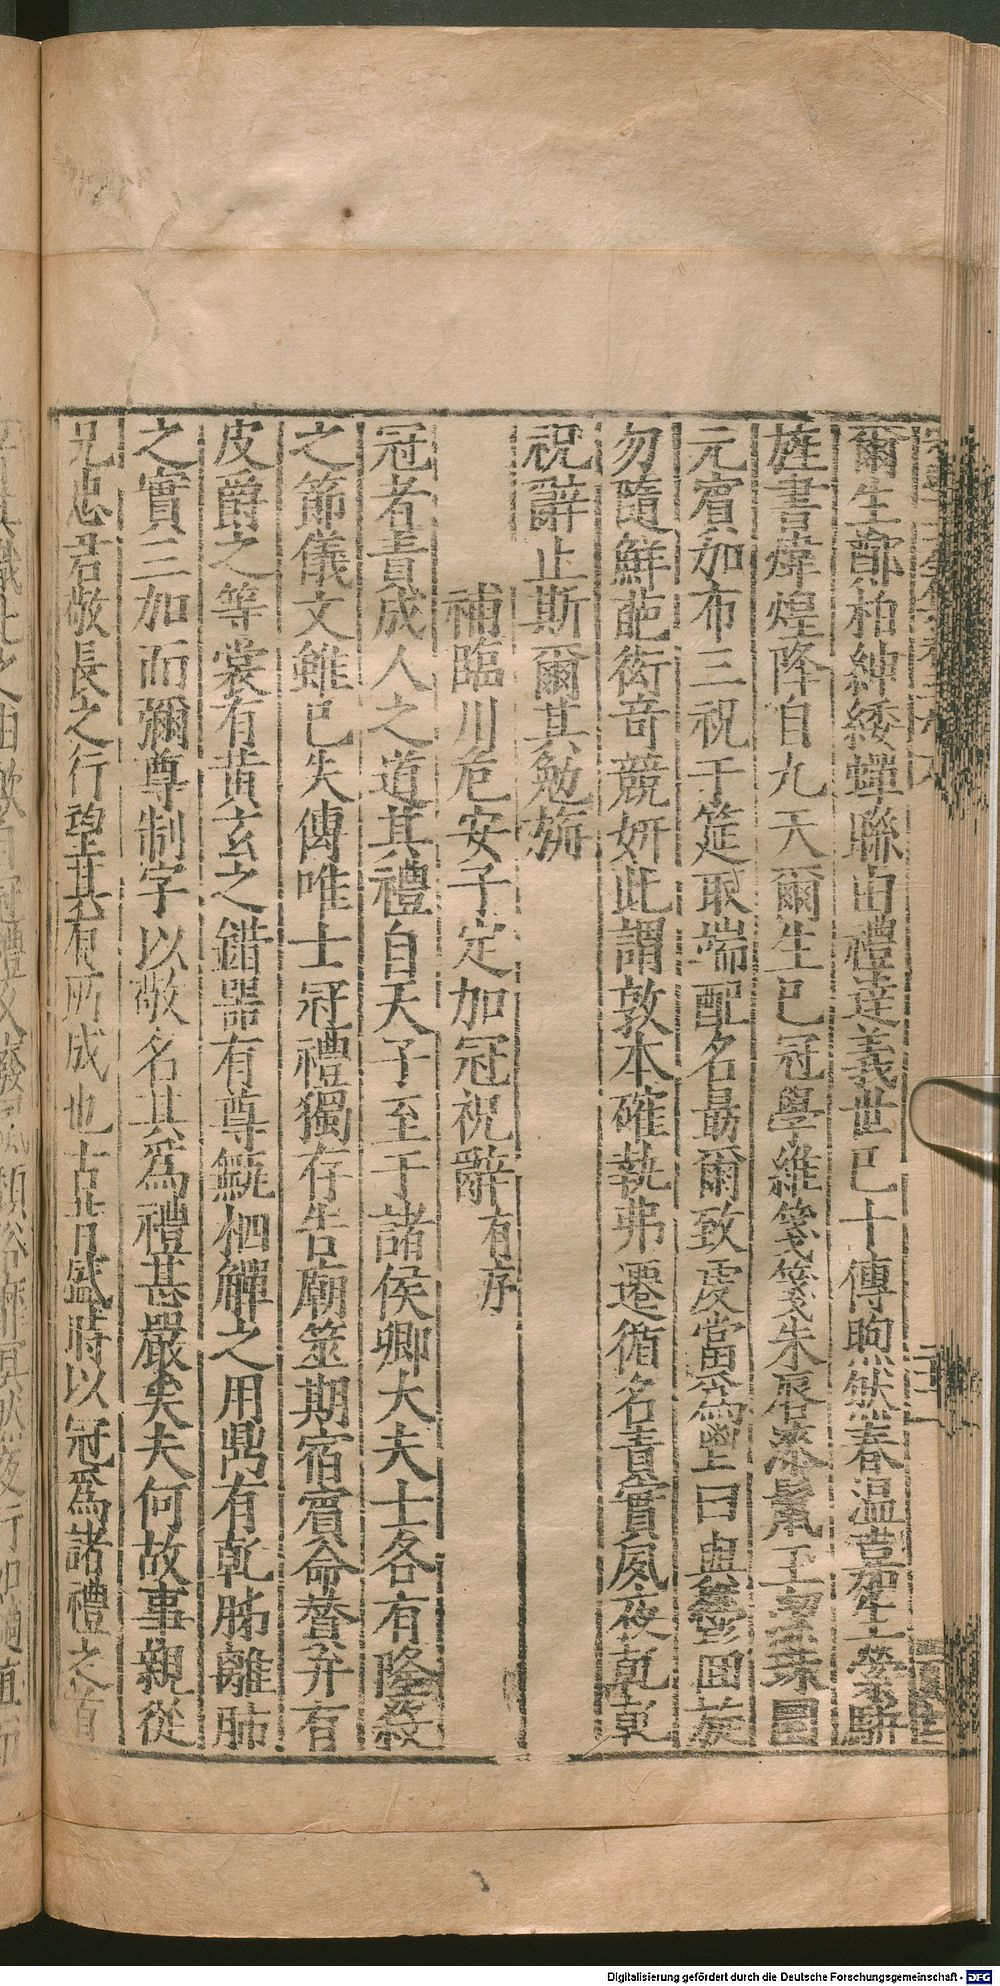 爾生鄮柏紳緌蟬聯由禮達義世已十傳昫然春溫嘉生縈駢
旌書煒煌降自九天爾生已冠學維箋箋朱唇漆鬢玉 珠圓
元賓加布三祝于筵取端配名勗爾致虔當爲 曰與 圓旋
勿隨鮮葩衒奇競妍此謂敦本確執弗遷循名責實夙夜乾乾
祝辭止斯爾其勉旃
補臨川危安子定加冠祝辭有序
冠者責成人之道其禮自天子至于諸侯卿大夫士各有隆殺
之節儀文雖已失傳唯士冠禮獨存告廟筮期宿賓命贊弁有
皮爵之等裳有黃玄之錯器有尊甒柶觶之用鼎有乾胏離肺
之實三加而彌尊制字以敬名其爲禮甚嚴矣夫何故事親從
兄忠君敬長之行望其有所成也古昔盛時以冠爲諸禮之首
Digitalisierung gefördert durch die Deutsche Forschungsgemeinschaft - DFG